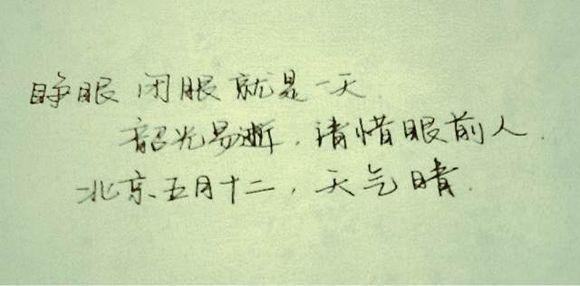 睁眼闭眼就是一天
韶光易逝，请惜眼前人
北京五月十二，天气晴.